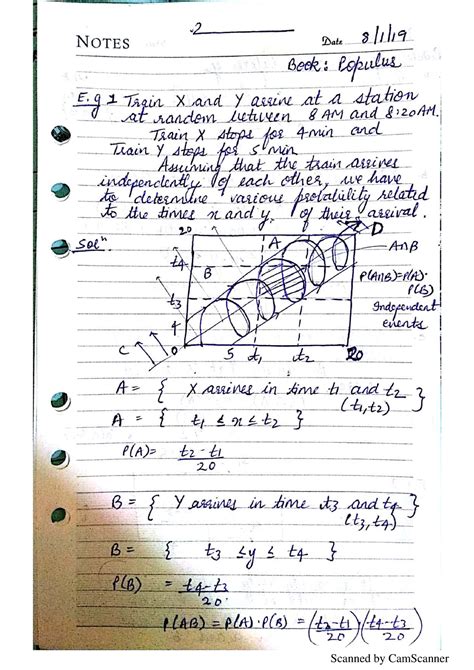 2
NOTES
Date 8/1/19
Book: Populus
E.g 1 Train X and Y arrive at a station
at random between 8 AM and 8:20 AM.
Train X stops for 4 min and
Train Y stops for 5 min
Assuming that the train arrives
independently of each other, we have
to determine various probability related
to the times x and y, of their arrival.
Solⁿ
20
A
D
A∩B
t4
B
P(A∩B)=P(A)·
P(B)
t3
Independent
events
4
C
0
5
t1
t2
20
A = { X arrives in time t1 and t2 }
(t1,t2)
A = { t1 ≤ x ≤ t2 }
P(A)= t2-t1
20
B = { Y arrives in time t3 and t4 }
(t3,t4)
B = { t3 ≤ y ≤ t4 }
P(B) = t4-t3
20
P(AB) = P(A)·P(B) = (t2-t1/20)(t4-t3/20)
Scanned by CamScanner